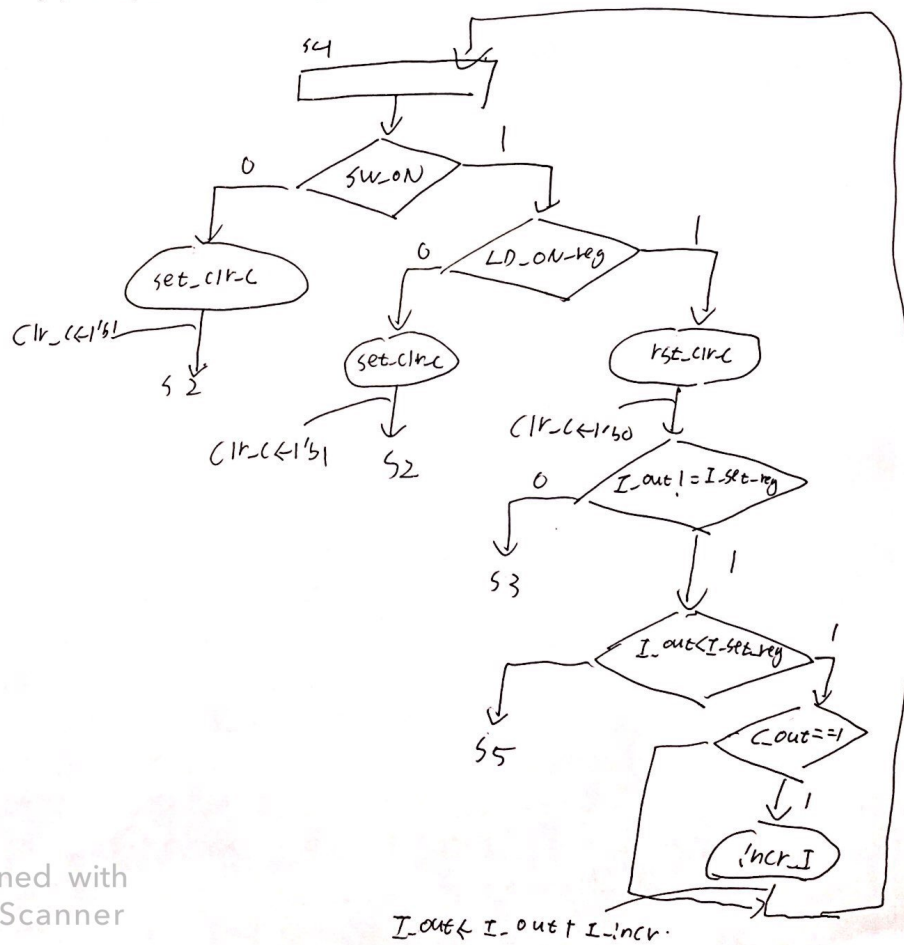 S4
SW_ON
0
1
set_clr_c
Clr_c←1'b1
S2
LD_ON_reg
0
1
set_clr_c
Clr_c←1'b1
S2
rst_clr_c
Clr_c←1'b0
I_out!=I_set_reg
0
S3
1
I_out<I_set_reg
1
S5
C_out==1
1
incr_I
I_out← I_out+I_incr.
ned with
Scanner